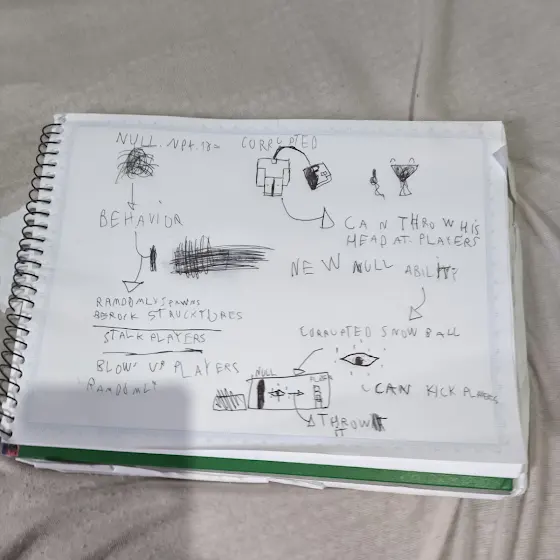 NULL. Npt. 18=
CORRUPTED
BEHAVIOR
CAN THROW HIS
HEAD AT PLAYERS
NEW NULL ABILIT?
RANDOMLY SPAWNS
BEDROCK STRUCKTURES
STALK PLAYERS
CORRUPTED SNOW BALL
BLOWS UP PLAYERS
RANDOMLY
NULL
CAN KICK PLAYERS
THROW
IT